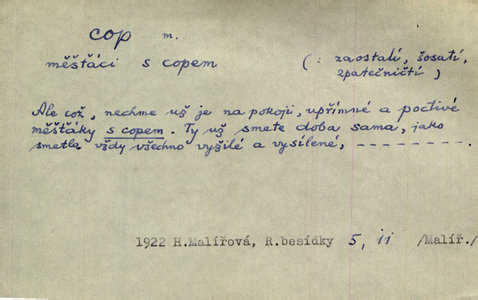 cop m.
měšťáci s copem (: zaostalí, šosatí,
zpátečničtí)
Ale což, nechme už je na pokoji, upřímné a poctivé
měšťáky s copem. Ty už smete doba sama, jako
smetla vždy všechno vyžilé a vysílené, – – – – – – – – .
1922 H.Malířová, R.besídky 5, ii /Malíř./